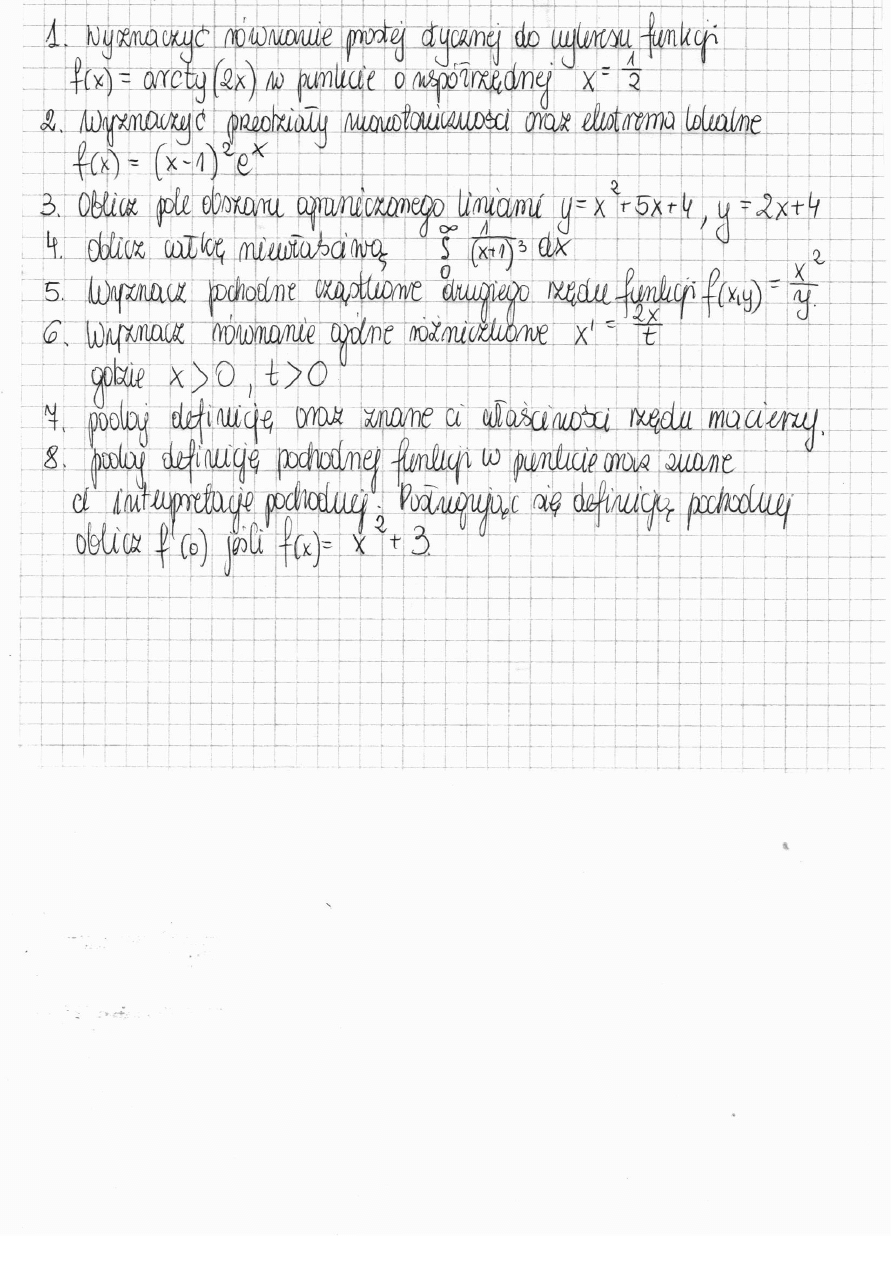 1. Wyznaczyć równanie prostej stycznej do wykresu funkcji
f(x) = arctg(2x) w punkcie o współrzędnej x = 1/2
2. Wyznaczyć przedziały monotoniczności oraz ekstrema lokalne
f(x) = (x-1)²eˣ
3. Oblicz pole obszaru ograniczonego liniami y = x² + 5x + 4, y = 2x + 4
4. Oblicz całkę niewłaściwą ∫₀^∞ 1/(x+1)³ dx
5. Wyznacz pochodne cząstkowe drugiego rzędu funkcji f(x,y) = x²/y
6. Wyznacz równanie ogólne różniczkowe x' = 2x/t
gdzie x > 0, t > 0
7. podaj definicję oraz znane ci właściwości rzędu macierzy.
8. podaj definicję pochodnej funkcji w punkcie oraz znane
ci interpretacje pochodnej. Posługując się definicją pochodnej
oblicz f'(0) jeśli f(x) = x² + 3